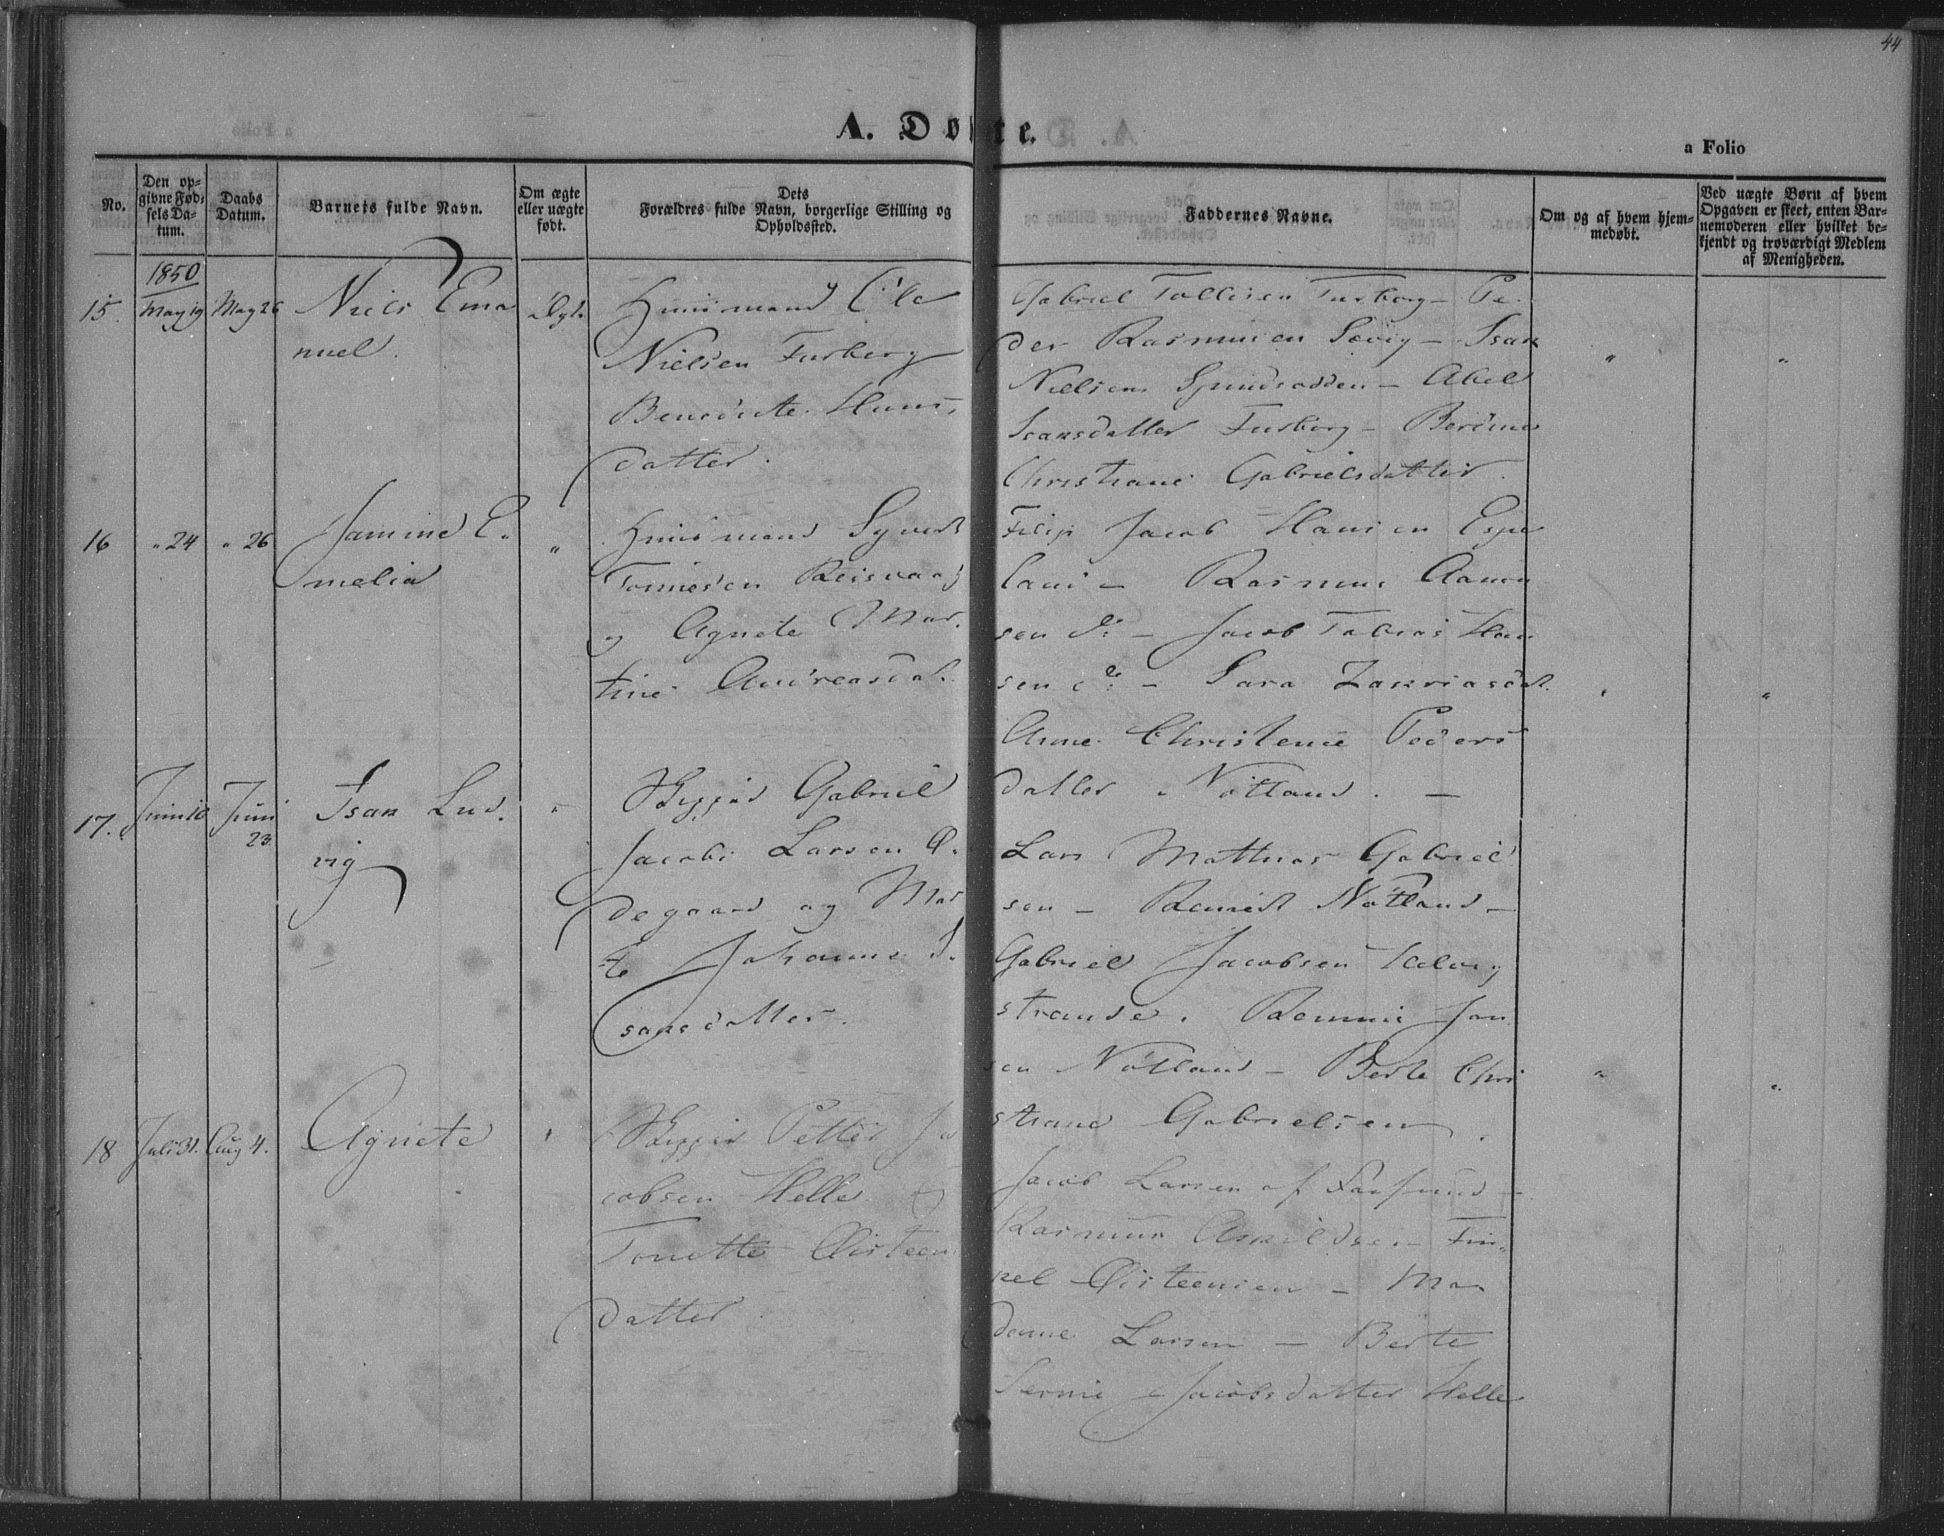 44
A. Døbte.
a Folio
No.
Den op-
givne Fød-
sels Da-
tum.
Daabs
Datum.
Barnets fulde Navn.
Om ægte
eller uægte
født.
Dets
Forældres fulde Navn, borgerlige Stilling og
Opholdssted.
Faddernes Navne.
Om og af hvem hjem-
medøbt.
Ved uægte Børn af hvem
Opgaven er skeet, enten Bar-
nemoderen eller hvilket be-
kjendt og troværdigt Medlem
af Menigheden.
1850
15. May 19 May 26 Niels Ema
nuel.
Ægt.
Huusmand Ole
Nielsen Fusberg
Benedicte Hans
datter.
Gabriel Tollisen Fusberg - Pe
der Rasmusen Sævig - Isak
Nielsen - Abel
Isaksdatter Fusberg -
Christiane Gabrielsdatter.
16 " 24 " 26 Jamine E.
melia
"
Huusmand Syvert
Tønnesen Reisvaag
og Agnete Mar.
tine Andreasdat.
Filip Jacob Hansen Espe
land - Rasmus Aanen
sen do - Jacob Tobias Han
sen do - Sara Zakriasdat.
Anne Christense Peders
datter Nøtland. -
17. Juni 10 Juni
23
Isak Lud.
vig
"
Skipper Gabriel
Jacobs Larsen Ø.
degaard og Mar
te Johanne I.
saksdatter.
Lars Mathias Gabriel
sen - Nøtland -
Gabriel Jacobsen Helvig
strande. Jan
sen Nøtland - Berte Chri
stiane Gabrielsen.
18 Juli 31. Aug 4. Agnete
"
Skipper Petter Ja
cobsen Helle og
Tonette Øisteen
datter.
Jacob Larsen af Farsund -
Rasmus Askildsen - Tin
kel Øisteensen - Ma
dame Larsen - Berte
Serine Jacobsdatter Helle